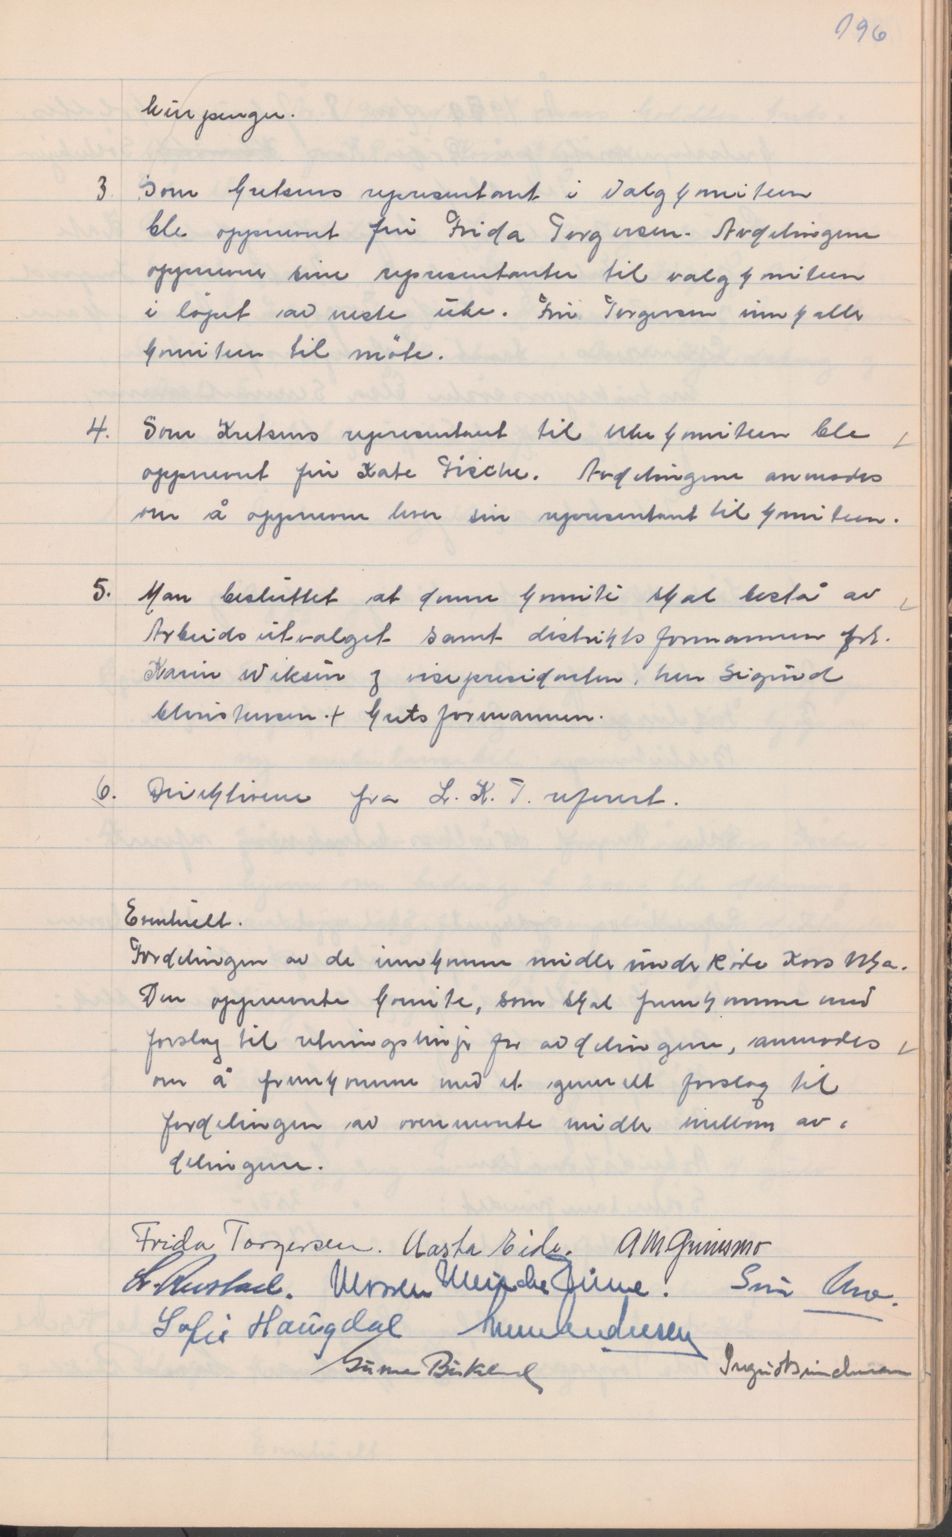 196
3 Som Kretsens representant i Valgkomiteen
ble oppnevnt fru Frida Torgersen. Avdelingene
oppnevner sine representanter til valgkomiteen
i løpet av neste uke. Fru Torgersen innkaller
komiteen til möte.
4. Som Kretsens representant til Ukekomiteen ble
oppnevnt fru Kate Fische. Avdelingene anmodes
om å oppnevne hver sin representant til komiteen.
5. Man besluttet at denne komité skal bestå av
Arbeidsutvalget samt distriktsformannen frk.
Karin Wiksén og visepresidenten, herr Sigurd
Christensen + Kretsformannen.
6. Direktivene fra L. K. T. referert.
Eventuelt.
Fordelingen av de innkomne midler under Røde Kors Uka.
Den oppnevnte komite, som skal fremkomme med
forslag til retningslinjer for avdelingene, anmodes
om å fremkomme med et generelt forslag til
fordelingen av ovennevnte midler mellom av-
delingene.
Frida Torgersen. Aasta Eide. A M Grimsmo
L. Rustad.
Sofie Haugdal
Birkeland